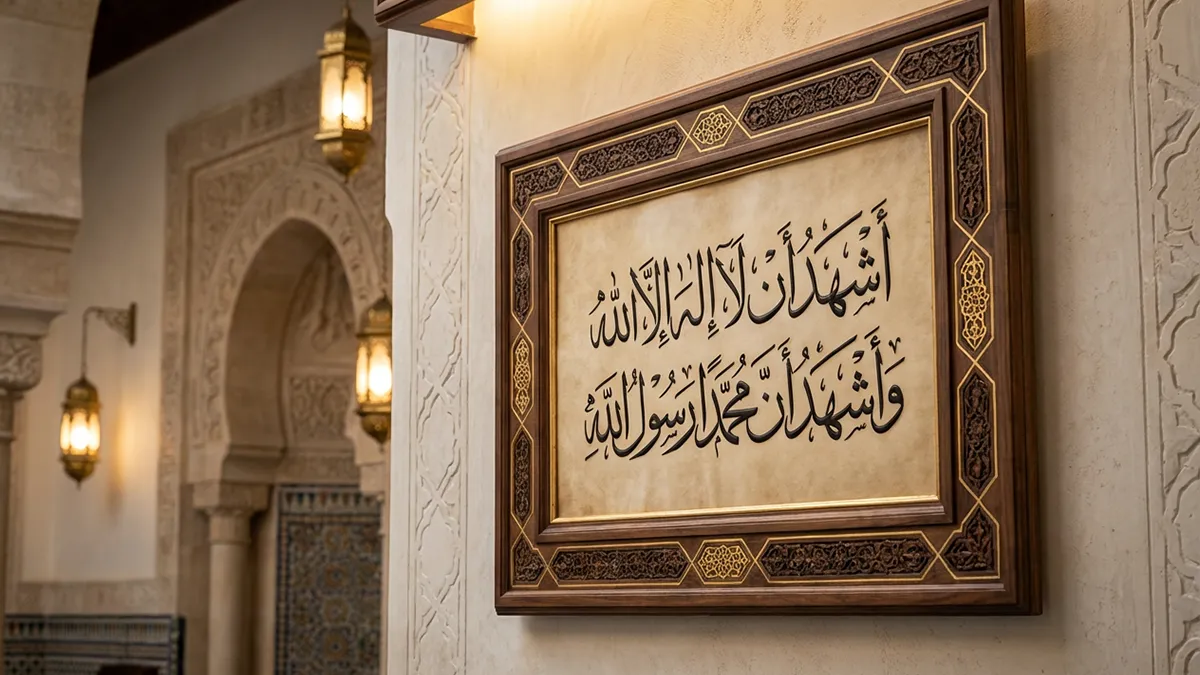 أَشْهَدُ أَنْ لَآ إِلَهَ إِلَّا اللهُ
وَأَشْهَدُ أَنَّ مُحَمَّدًا رَسُوْلُ اللَّهِ